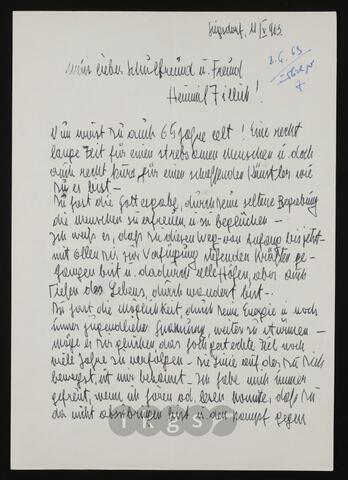 Siegsdorf, 11 IV 963.
2.6.63
mein lieber Schulfreund u. Freund
Heinrich Zillich!
Nun wirst Du auch 65 Jahre alt! Eine recht
lange Zeit für einen strebsamen Menschen u. doch
auch recht kurz, für einen schaffenden Künstler wie
Du es bist –
Du hast die Gottesgabe, durch Deine seltene Begabung
die Menschen zu erfreuen u. zu beglücken –
Ich weiss es, daß Du diesen Weg – von Anfang bis jetzt –
mit allen Dir zur Verfügung stehenden Kräften ge-
gangen bist u. dadurch alle Höhen, aber auch
Tiefen des Lebens, durchwandert bist –
Du hast die Möglichkeit, durch Deine Energie u. noch
immer jugendlicher Spannung, weiter zu stürmen –
möge es Dir gelingen das hochgesteckte Ziel noch
viele Jahre zu verfolgen – Die Linie auf der Du Dich
bewegst, ist mir bekannt – Ich habe mich immer
gefreut, wenn ich hören od. lesen konnte, daß Du
da nicht abzubringen bist u. den Kampf gegen
ikgs